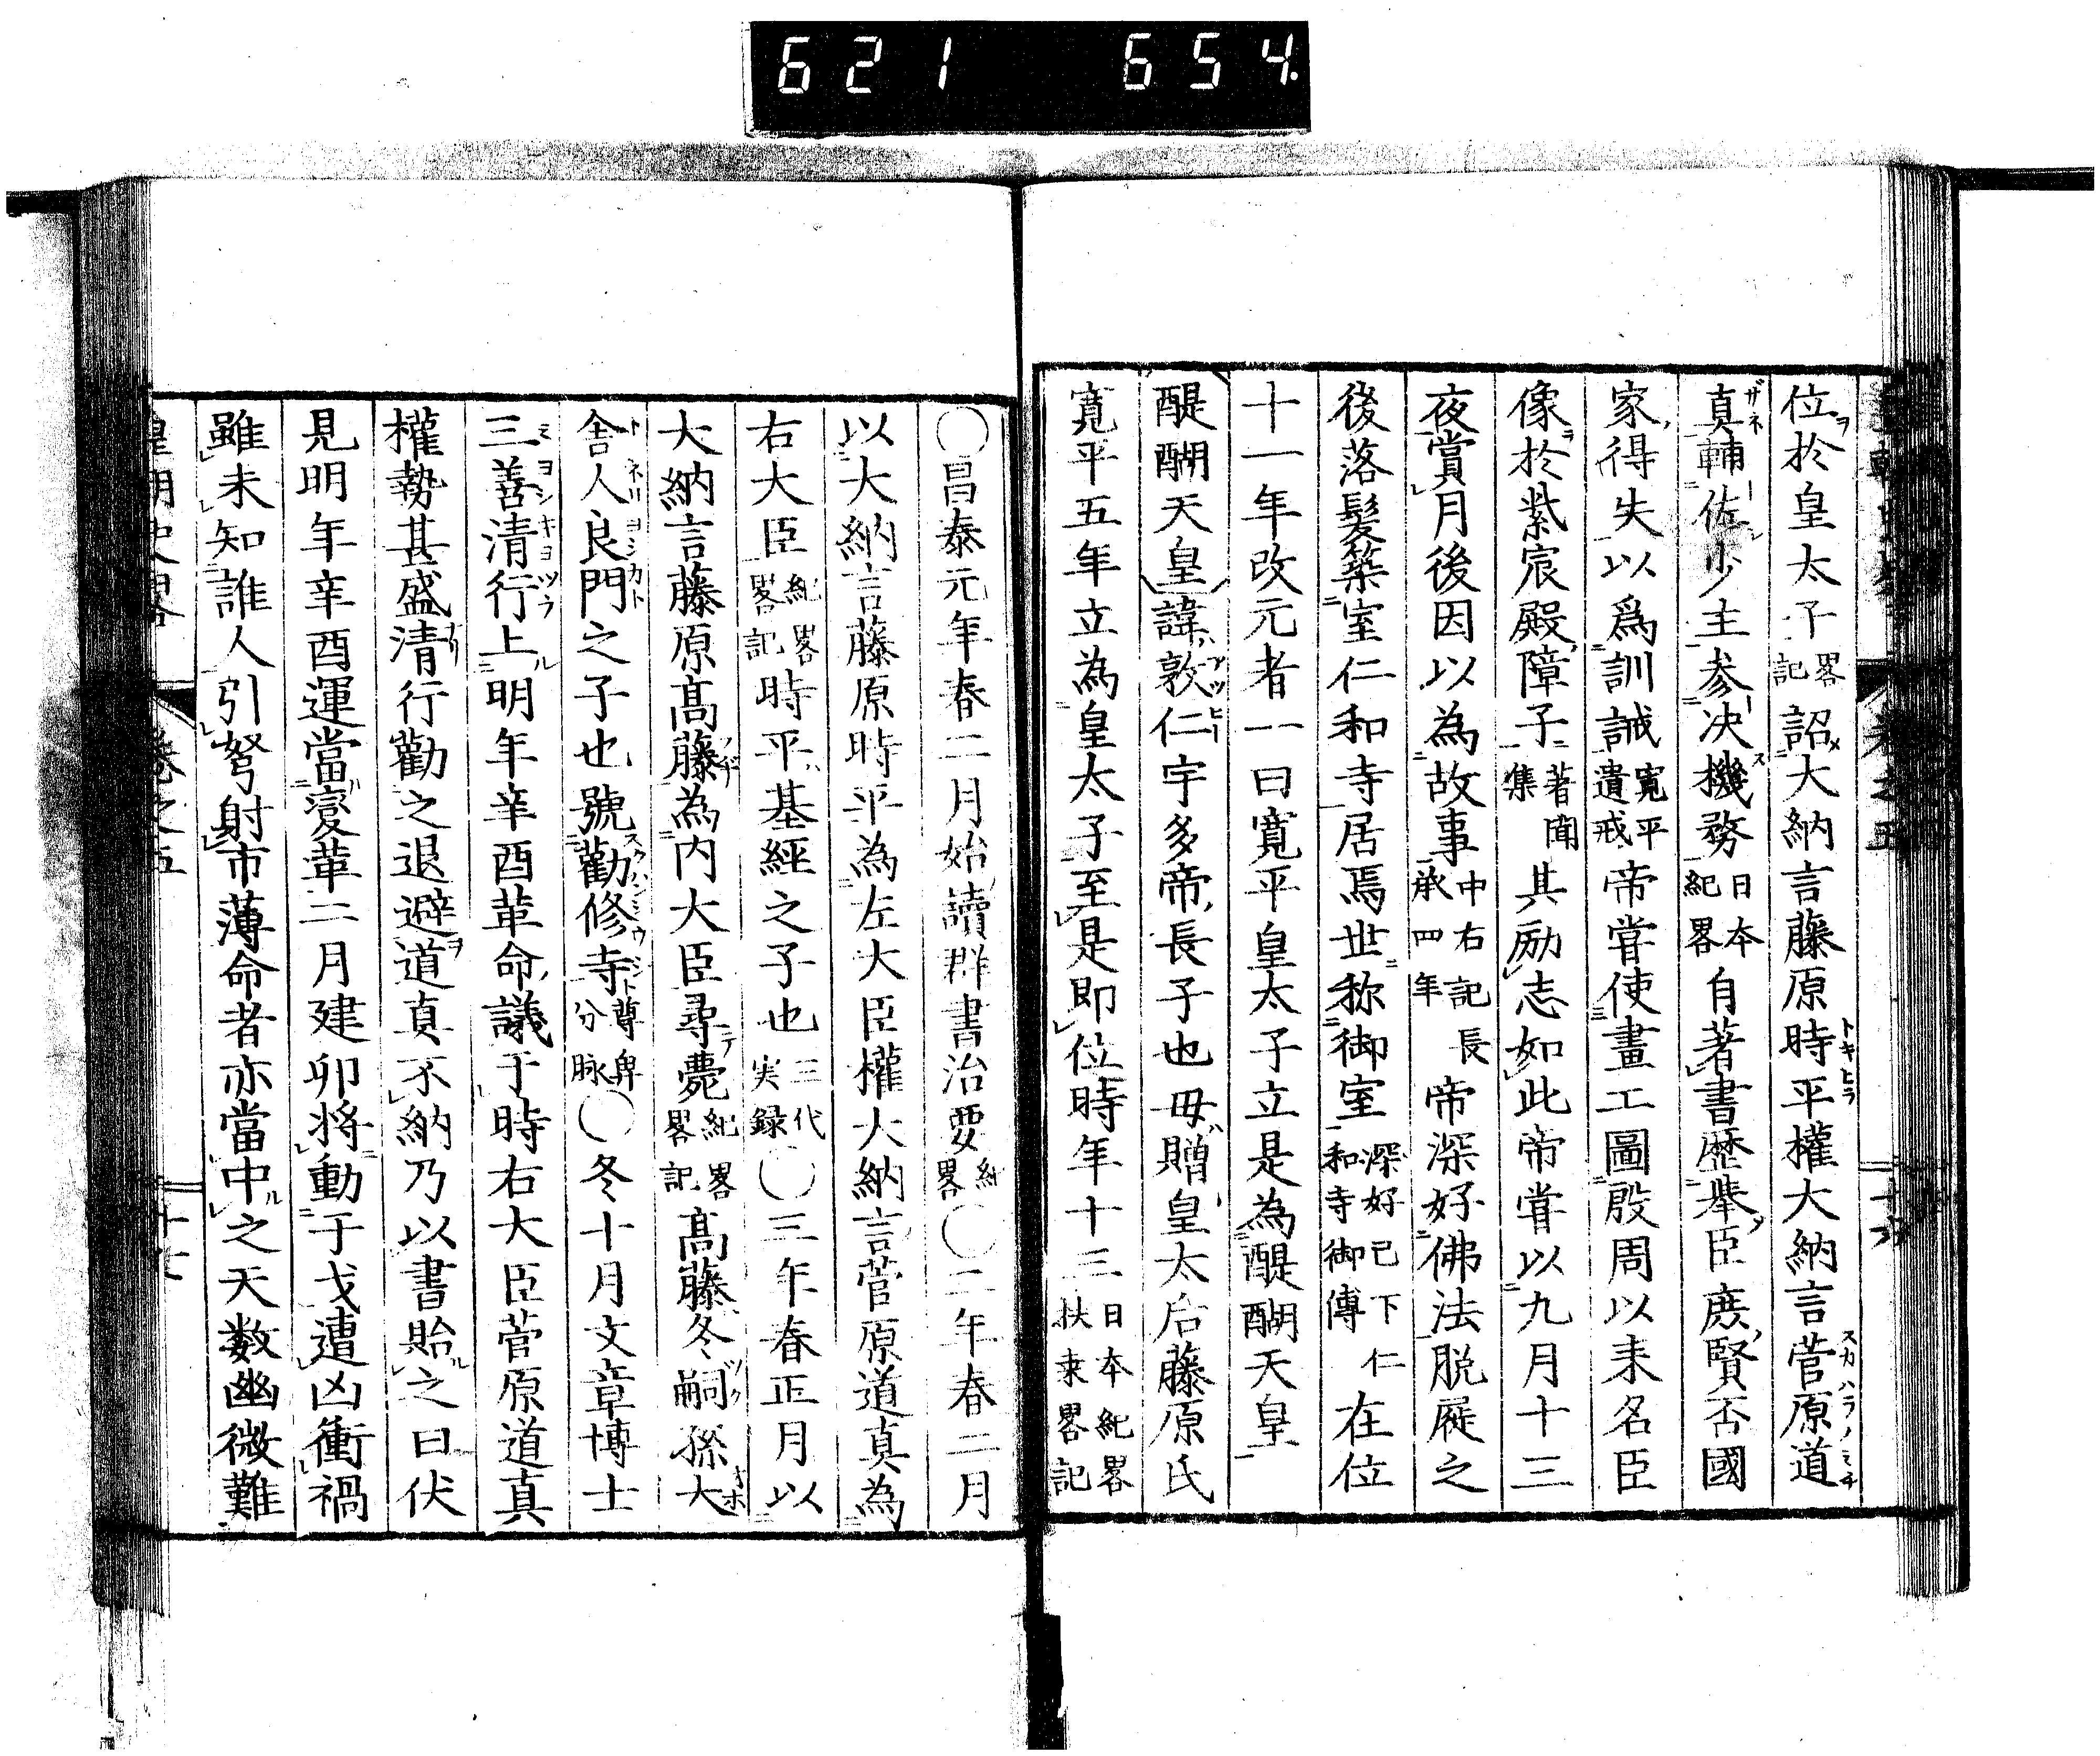 621 654
位於皇太子畧記詔大納言藤原時平權大納言菅原道
真輔佐少主参决機務日本紀畧自著書歴舉臣庶賢否國
家得失以爲訓誡寛平遺戒帝甞使畫工圖殷周以来名臣
像於紫宸殿障子著聞集其励志如此帝甞以九月十三
夜賞月後因以為故事中右記長承四年帝深好佛法脱屣之
後落髮築室仁和寺居焉世称御室深好已下仁和寺御傳在位
十一年改元者一曰寛平皇太子立是為醍醐天皇
醍醐天皇諱敦仁宇多帝長子也母贈皇太后藤原氏
寛平五年立為皇太子至是即位時年十三日本紀畧扶桒畧記
〇昌泰元年春二月始讀群書治要紀畧〇二年春二月
以大納言藤原時平為左大臣權大納言菅原道真為
右大臣紀畧畧記時平基經之子也三代実録〇三年春正月以
大納言藤原髙藤為内大臣尋薨紀畧畧記髙藤冬嗣孫大
舎人良門之子也號勸修寺尊卑分脉〇冬十月文章博士
三善清行上明年辛酉革命議于時右大臣菅原道真
權勢甚盛清行勸之退避道真不納乃以書貽之曰伏
見明年辛酉運當変革二月建卯将動于戈遭凶衝禍
雖未知誰人引弩射市薄命者亦當中之天数幽微難
卷之五